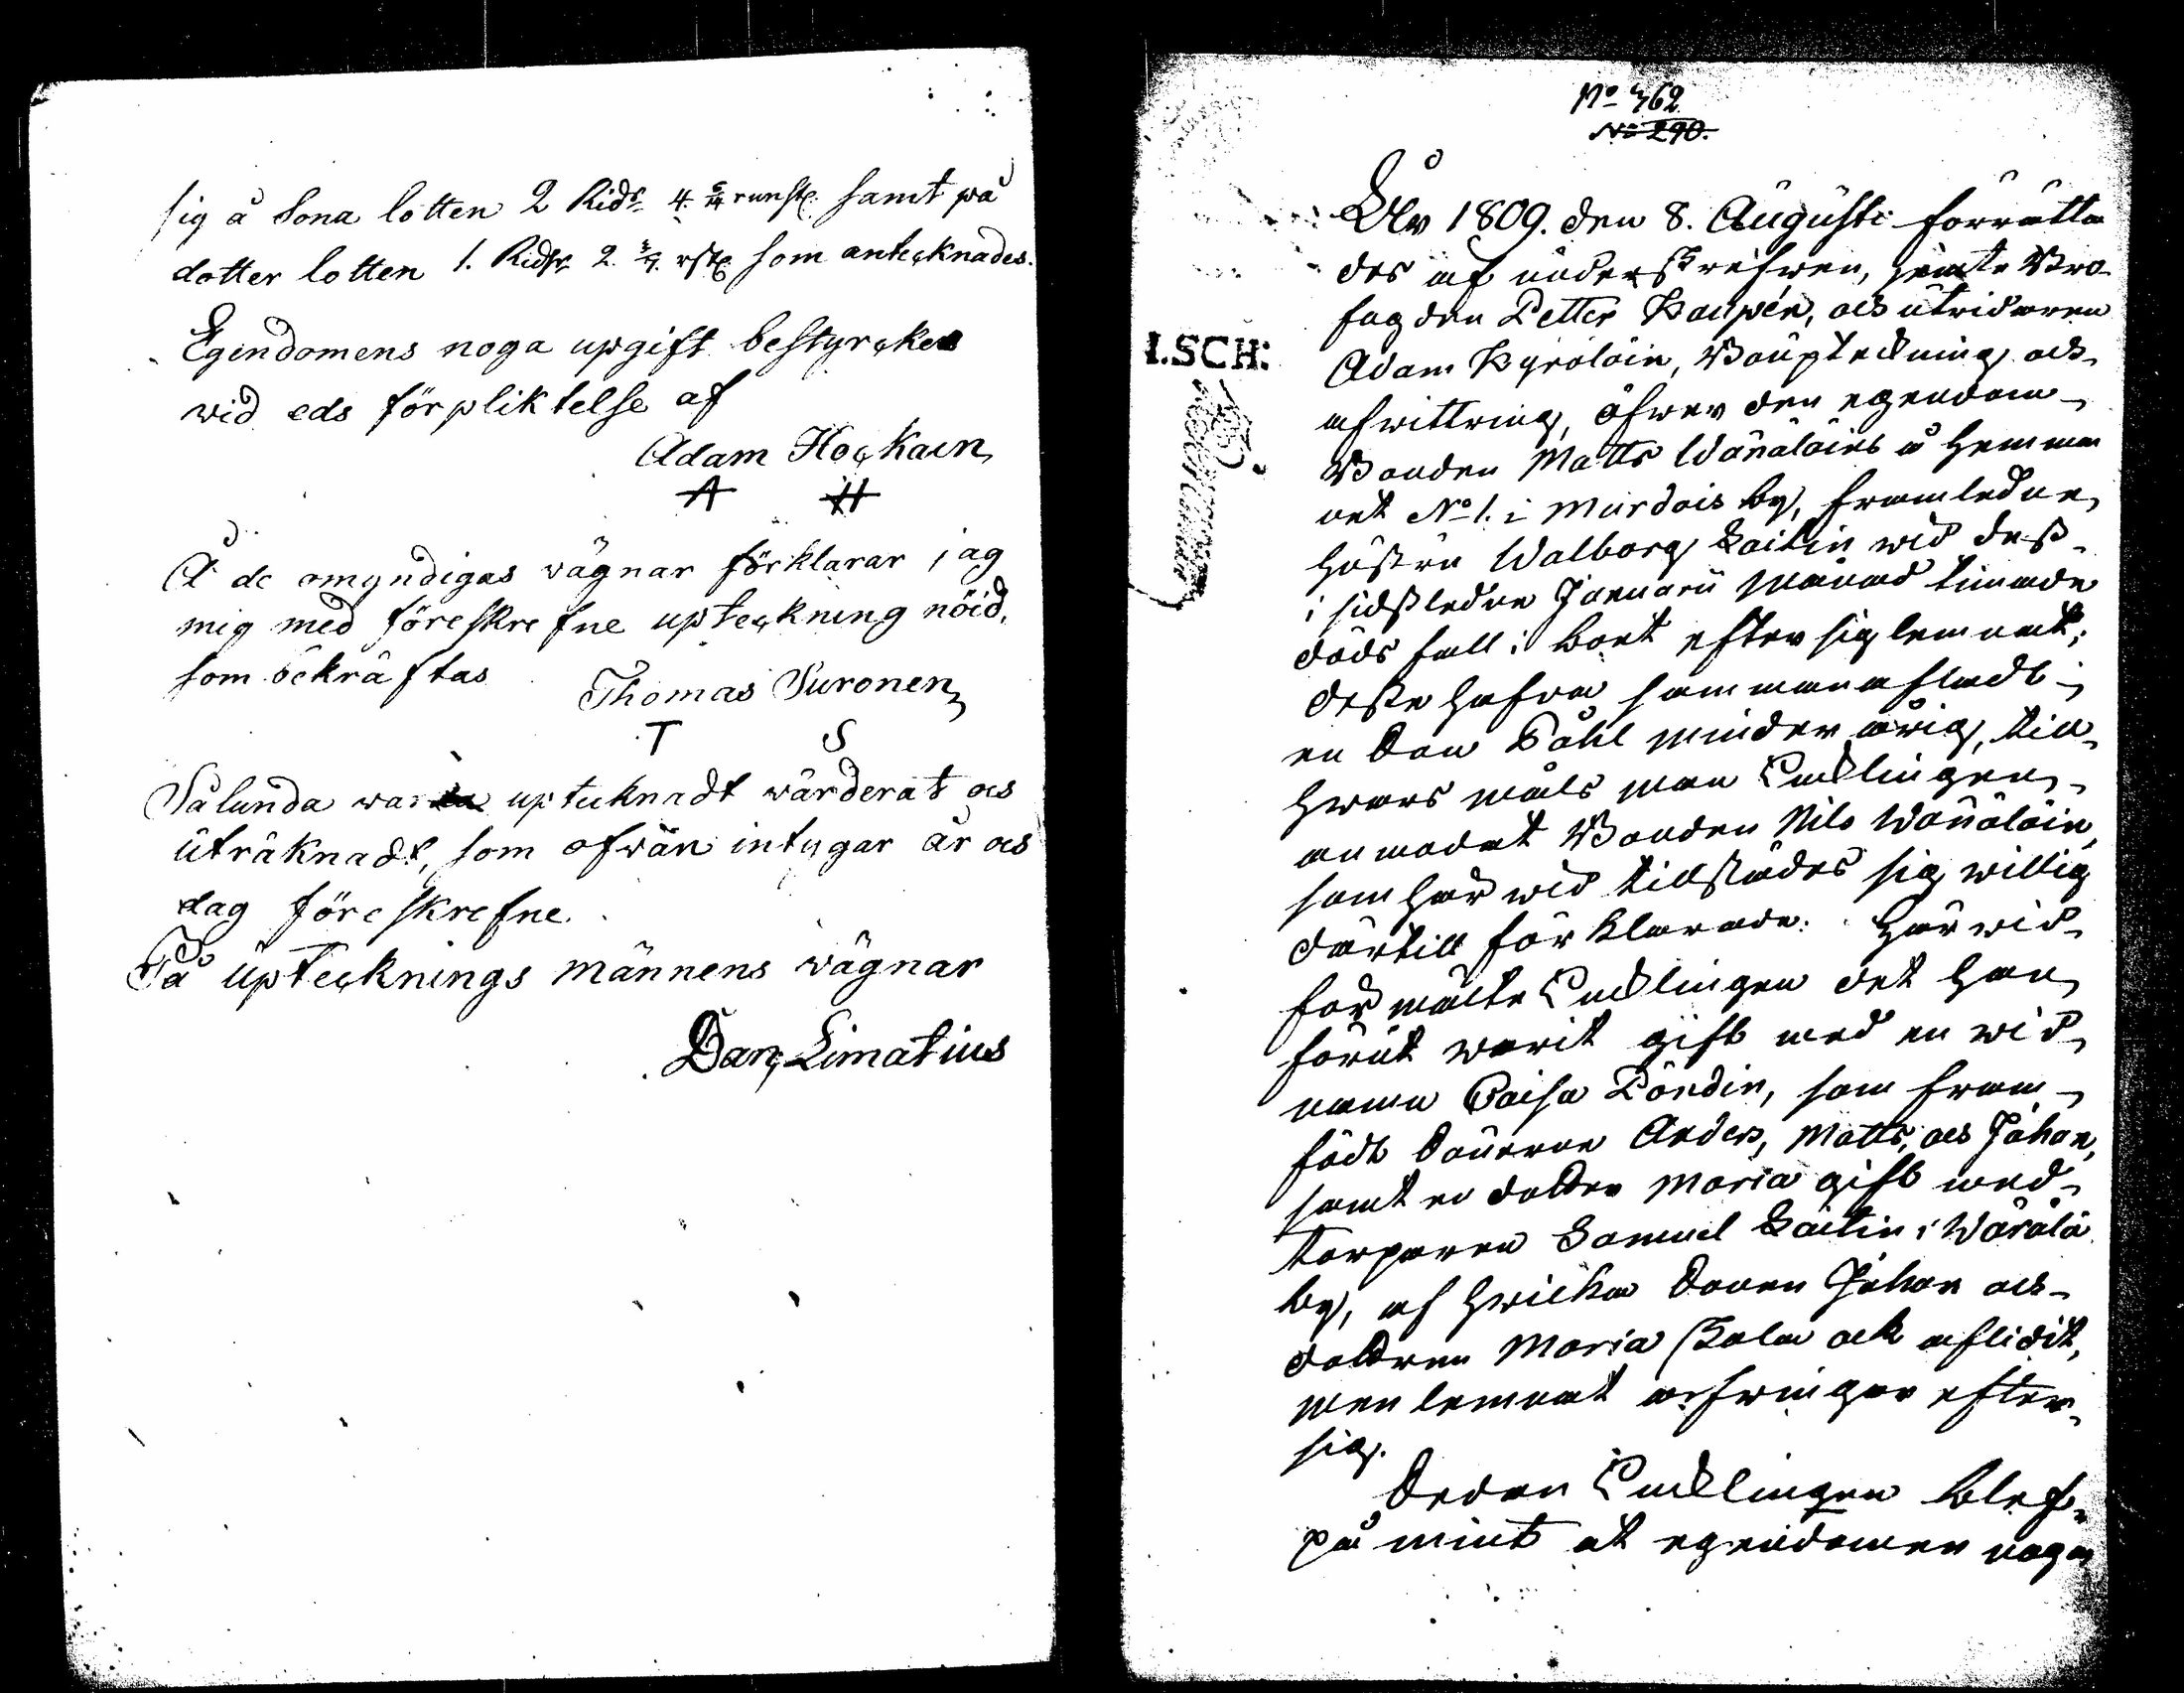 sig å Sona lotten 2 Ridr 4 runst samt på
dotter lotten 1. Ridr 2 rst som anteknades.
Egendomens noga upgift bestyrckes
wid eds förpliktelse af
Adam Hockain
A H
Å de omyndigas vägnar förklarar jag
mig med föreskrefne upteckning nöid,
som bekräftas Thomas Suronen
T S
Sålunda wara uptecknadt wärderat och
uträknadt, som ofwan intygar år och
dag föreskrefne.
På uptecknings männens vägnar
Dan, Limatius
No 362
No 290.
I.SCH:
År 1809. den 8. Augusti förrätta
des af underskrifwen, jemte Bro
fogden Petter Kaupén, och utridaren
Adam Kyröläin, Bouptekning och
afwittring, öfwer den egendom
Bonden Matts Wänäläins å hemma
net No 1. i Murdois by, framledne
hustru Walborg Laitin wid dess
i sidstledne Januarii Månad timade
döds fall i boet efter sig lemnat;
desse hafva sammanafladt
en Son Påhl minder årig, till
hwars måls man Enklingen
anmodat Bonden Nils Wänäläin,
som här wid tillstädes sig willig
därtill förklarade. Härwid
förmälte Enklingen det han
förut warit gift med en wid
namn Caisa Pöndin, som fram
födt Sönerne Anders, Matts, och Johan,
samt en dotter Maria gift med
torparen Samuel Laitin i Wäälä
by, af hwilka Sonen Johan och
dottren Maria skola ock aflidit,
men lemnat arfwingar efter
sig.
Sedan Enklingen blef
på mint at egendomen noga